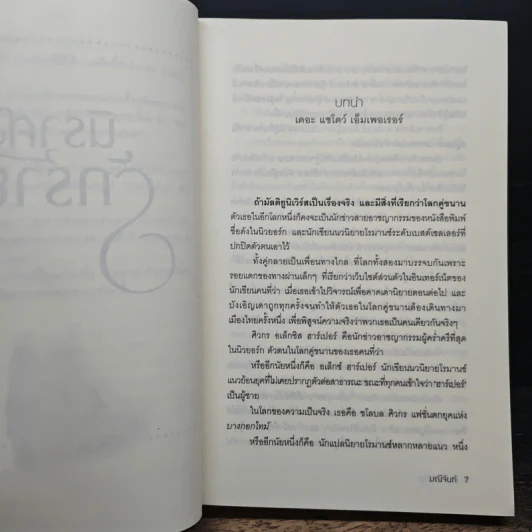 บทนำ
เดอะ แชโดว์ เอ็มเพอเรอร์
ถ้ามัลติยูนิเวิร์สเป็นเรื่องจริง และมีสิ่งที่เรียกว่าโลกคู่ขนาน
ตัวเธอในอีกโลกหนึ่งก็คงจะเป็นนักข่าวสายอาชญากรรมของหนังสือพิมพ์
ชื่อดังในนิวยอร์ก และนักเขียนนวนิยายโรมานซ์ระดับเบสต์เซลเลอร์ที่
ปกปิดตัวตนเอาไว้
ทั้งคู่กลายเป็นเพื่อนทางไกล ที่โลกทั้งสองมาบรรจบกันเพราะ
รอยแตกของทางผ่านเล็กๆ ที่เรียกว่าเว็บไซต์ส่วนตัวในอินเทอร์เน็ตของ
นักเขียนคนที่ว่า เมื่อเธอเข้าไปวิจารณ์เพื่อคาดเดานิยายตอนต่อไป และ
บังเอิญเดาถูกทุกครั้งจนทำให้ตัวเธอในโลกคู่ขนานต้องเดินทางมา
เมืองไทยครั้งหนึ่ง เพื่อพิสูจน์ความจริงว่าพวกเธอเป็นคนเดียวกันจริงๆ
ศิวกร อเล็กซิส ฮาร์เปอร์ คือนักข่าวอาชญากรรมผู้คร่ำครีที่สุด
ในนิวยอร์ก ตัวตนในโลกคู่ขนานของเธอคนที่ว่า
หรืออีกนัยหนึ่งก็คือ อเล็กซ์ ฮาร์เปอร์ นักเขียนนวนิยายโรมานซ์
แนวย้อนยุคที่ไม่เคยปรากฏตัวต่อสาธารณะ ขณะที่ทุกคนเข้าใจว่า 'ฮาร์เปอร์'
เป็นผู้ชาย
ในโลกของความเป็นจริง เธอคือ ชโลบล ศิวกร แฟชั่นตกยุคแห่ง
บางกอกไทม์
หรืออีกนัยหนึ่งก็คือ นักแปลนิยายโรมานซ์หลากหลายแนว หนึ่ง
มณีจันท์ 7